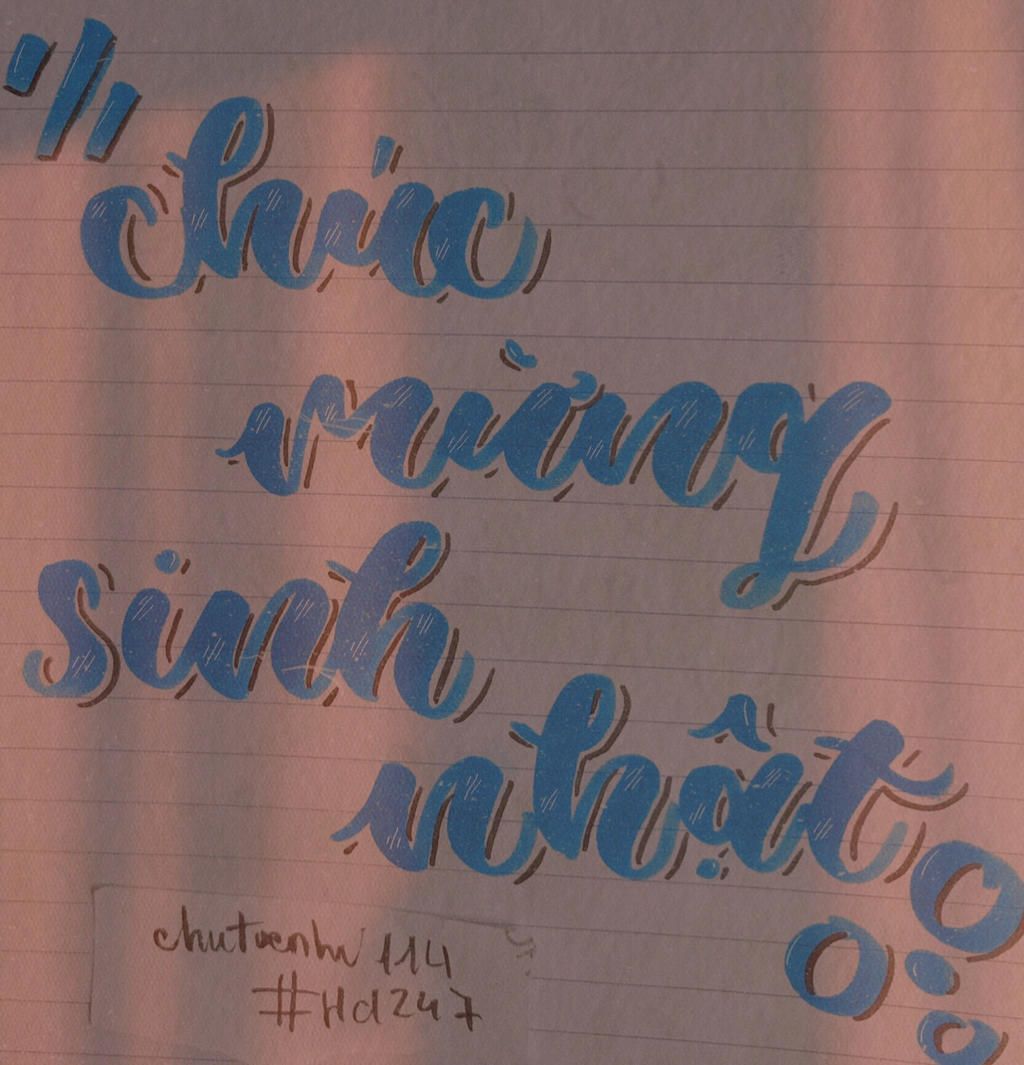 chúc
mừng
sinh
nhật
#Hd247